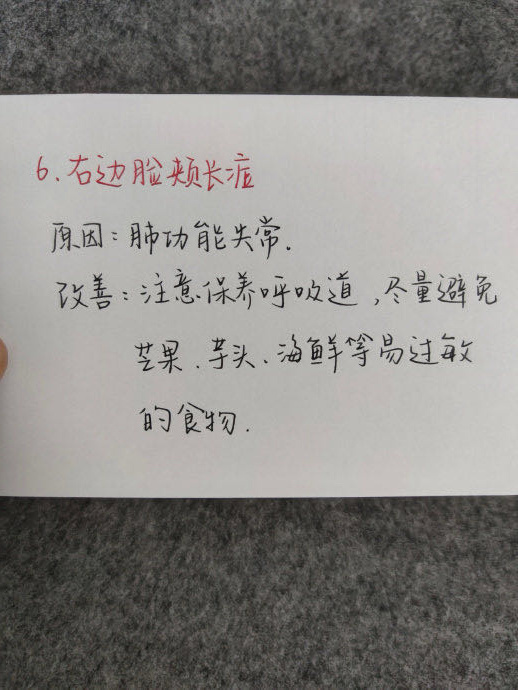 6.右边脸颊长痘
原因:肺功能失常.
改善:注意保养呼吸道,尽量避免
芒果、芋头、海鲜等易过敏
的食物.